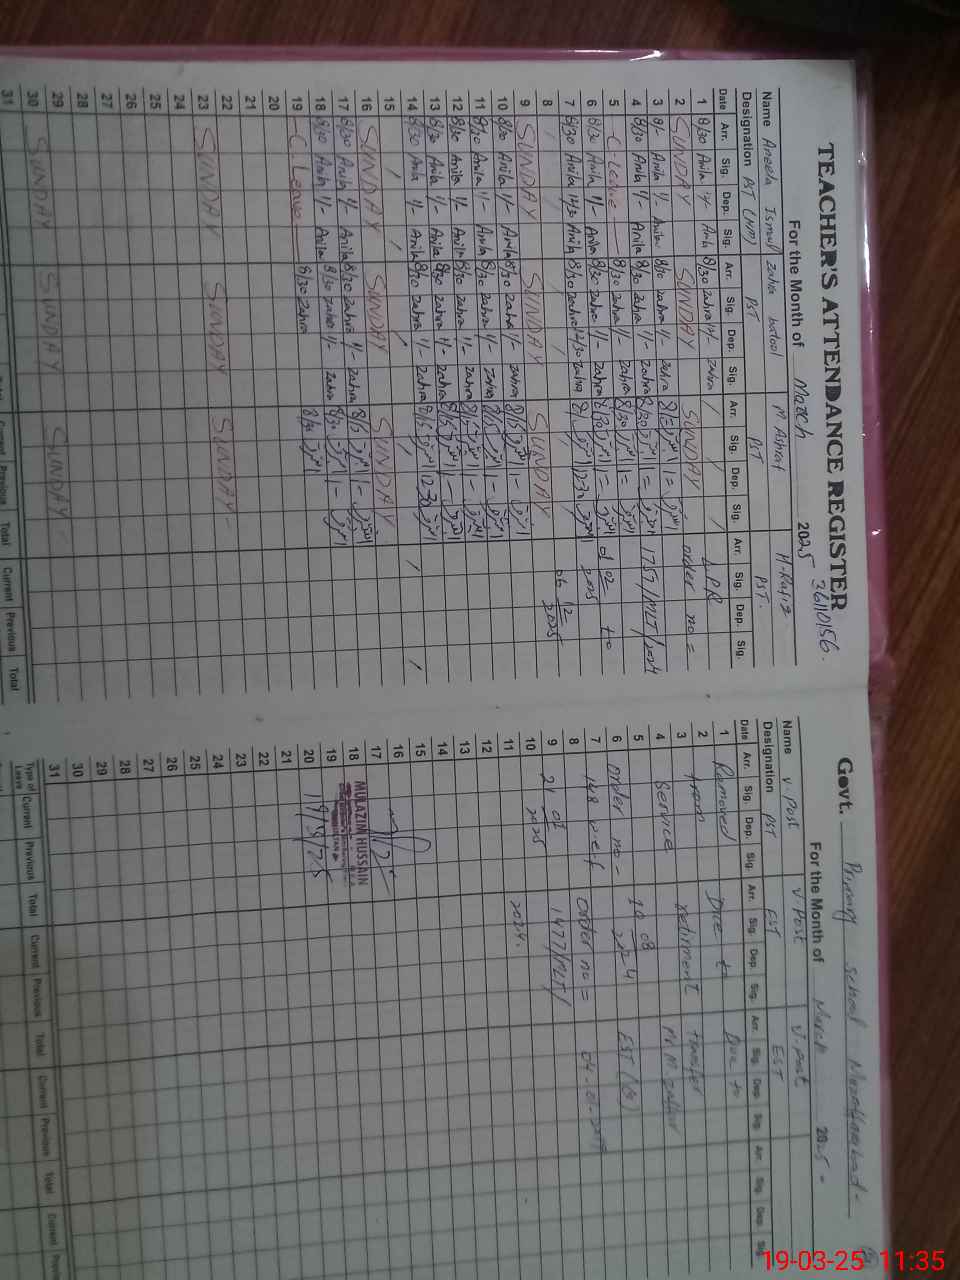 TEACHER'S ATTENDANCE REGISTER
36110156.
For the Month of March 2025
Name Aneela Ismail Zahra batool M Ashraf M-Rafiq
Designation PST (NP) PST PST PST.
Date Arr. Sig. Dep. Sig. Arr. Sig. Dep. Sig. Arr. Sig. Dep. Sig. Arr. Sig. Dep. Sig.
1 8/30 Anila 1/- Anila 8/30 Zahra 1/- Zahra LPR
2 SUNDAY SUNDAY SUNDAY order no =
3 8/- Anila 1/- Anila 8/30 Zahra 1/- Zahra 8/15 اشرف 1= اشرف
4 8/30 Anila 1/- Anila 8/30 Zahra 1/- Zahra 8/30 اشرف 1= اشرف 1757/MLT/2024
5 C-Leave 8/30 Zahra 1/- Zahra 8/30 اشرف 1= اشرف
6 8/30 Anila 1/- Anila 8/30 Zahra 1/- Zahra 8/30 اشرف 1= اشرف 01 02 2025 to
7 8/30 Anila 12/30 Anila 8/30 Zahra 12/30 Zahra اشرف 1230 اشرف
8 06 12 2025
9 SUNDAY SUNDAY SUNDAY
10 8/30 Anila 1/- Anila 8/30 Zahra 1/- Zahra 8/15 اشرف 1- اشرف
11 8/30 Anila 1/- Anila 8/30 Zahra 1/- Zahra 8/15 اشرف 1- اشرف
12 8/30 Anila 1/- Anila 8/30 Zahra 1/- Zahra 8/15 اشرف 1- اشرف
13 8/30 Anila 1/- Anila 8/30 Zahra 1/- Zahra 8/15 اشرف 1- اشرف
14 8/30 Anila 1/- Anila 8/30 Zahra 1/- Zahra 8/15 اشرف 1230 اشرف
15
16 SUNDAY SUNDAY SUNDAY
17 8/30 Anila 1/- Anila 8/30 Zahra 1/- Zahra 8/15 اشرف 1- اشرف
18 8/30 Anila 1/- Anila 8/30 Zahra 1/- Zahra 8/30 اشرف 1- اشرف
19 C.Leave 8/30 Zahra 8/30 اشرف
20
21
22
23 SUNDAY SUNDAY SUNDAY
24
25
26
27
28
29
30 SUNDAY SUNDAY SUNDAY
31
Current Previous Total Current Previous Total
Govt. Primary School
For the Month of March 2025
Name V.Post V.Post V.Post
Designation PST EST EST
Date Arr. Sig. Dep. Sig. Arr. Sig. Dep. Sig. Arr. Sig. Dep. Sig. Arr. Sig. Dep. Sig.
1 Removed Due to Due to
2 from transfer
3 retirment
4 Service
5 10 08 2024
6 order no-
7 148 w.e.f order no =
8 1477/MLT/
9 21 02 2025
10 2024.
11
12
13
14
15
16
17
18 MULAZIM HUSSAIN
19
20 19/3/25
21
22
23
24
25
26
27
28
29
30
31
Type of Leave Current Previous Total Current Previous Total Current Previous Total Current
19-03-25 11:35